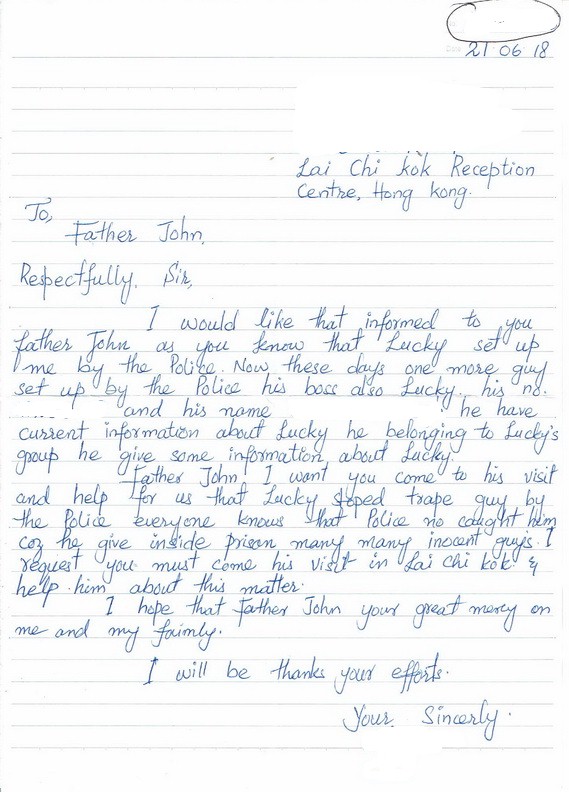 21 06 18
Lai Chi kok Reception
Centre, Hong kong.
To,
Father John,
Respectfully. Sir,
I would like that informed to you
father John as you know that Lucky set up
me by the Police. Now these days one more guy
set up by the Police his boss also Lucky. his no.
and his name he have
current information about Lucky he belonging to Lucky's
group he give some information about Lucky.
Father John I want you come to his visit
and help for us that Lucky stoped trape guy by
the Police everyone knows that Police no caught him
coz he give inside prison many many inocent guys. I
request you must come his visit in Lai chi kok &
help him about this matter.
I hope that Father John your great mercy on
me and my faimly.
I will be thanks your efforts.
Your. Sincerly.